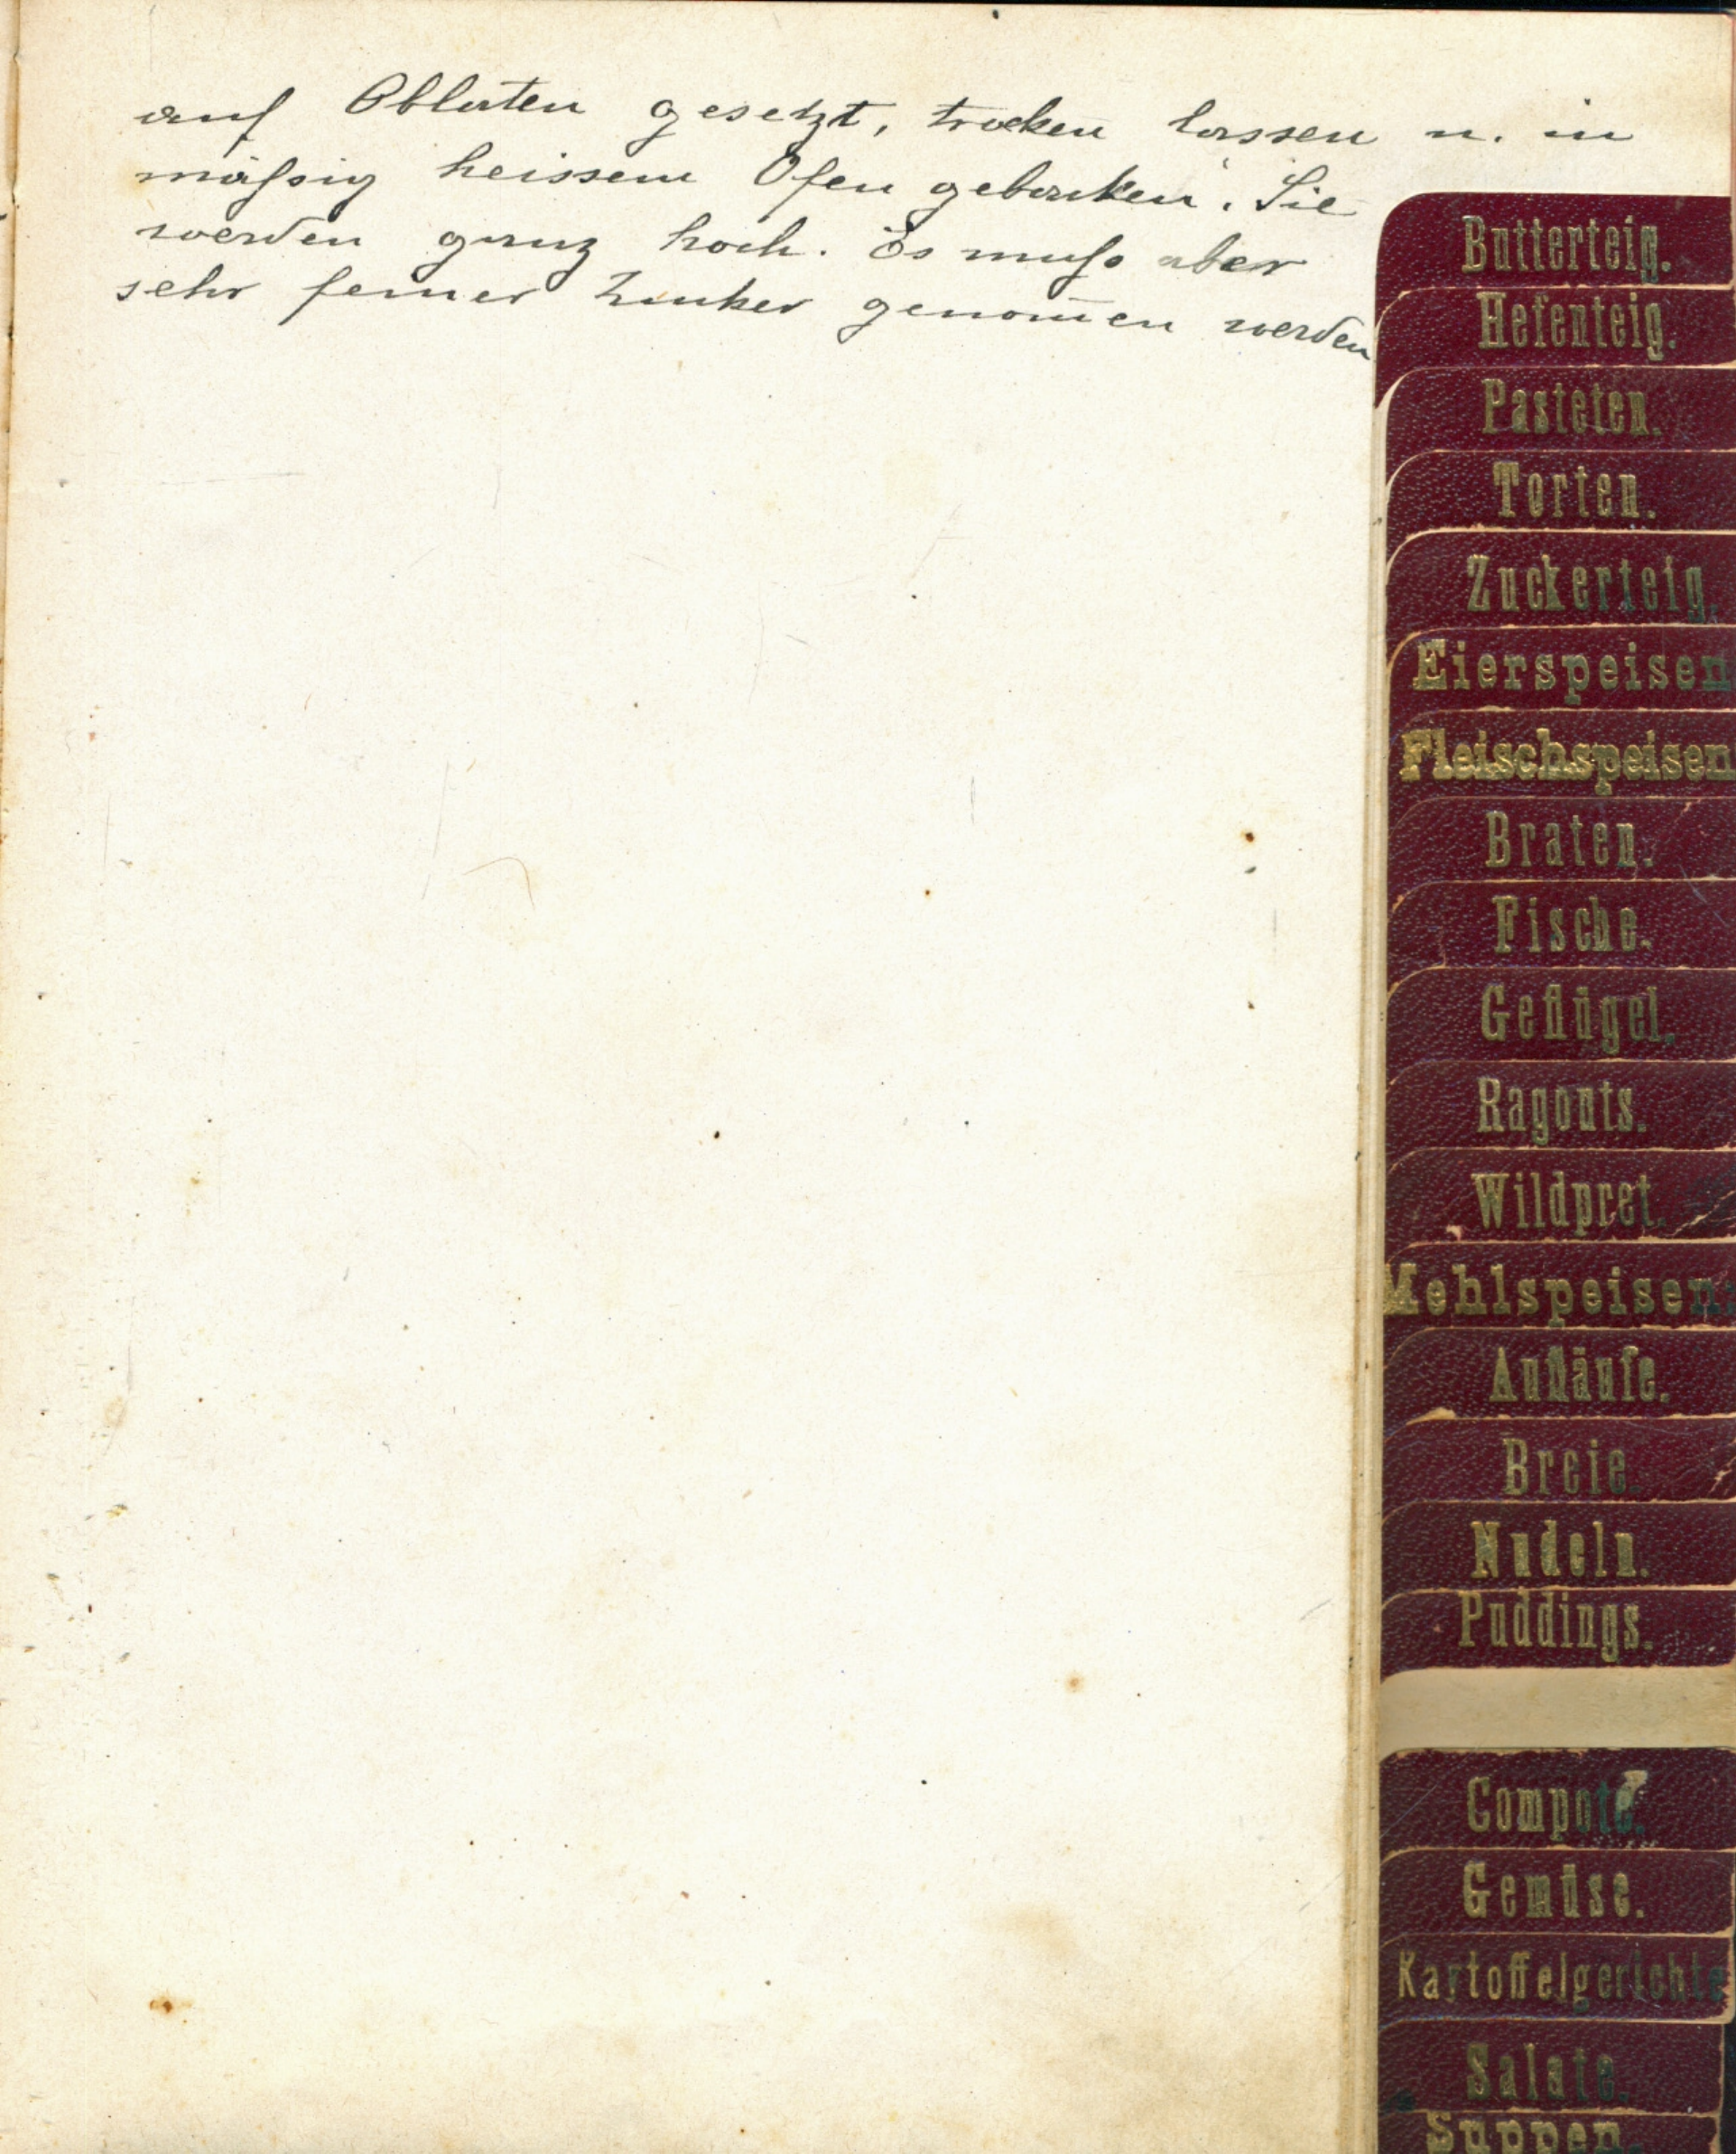 auf Oblaten gesetzt, trocken lassen u. in
mäßig heissem Ofen gebacken. Sie
werden ganz hoch. Es muß aber
sehr feiner Zucker genom̅en werden
Butterteig.
Hefenteig.
Pasteten.
Torten.
Zuckerteig.
Eierspeisen
Fleischspeisen
Braten.
Fische.
Geflügel.
Ragouts.
Wildpret.
Mehlspeisen.
Aufläufe.
Breie.
Nudeln.
Puddings.
Compote.
Gemüse.
Kartoffelgerichte
Salate.
Suppen.